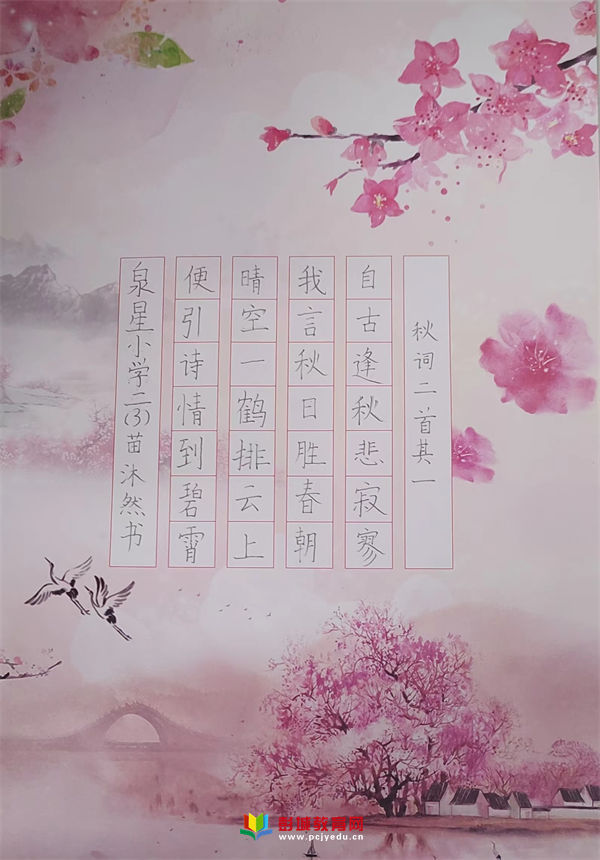 秋词二首其一
自古逢秋悲寂寥
我言秋日胜春朝
晴空一鹤排云上
便引诗情到碧霄
泉星小学二(3)苗沐然书
彭城教育网
www.pcjyedu.cn